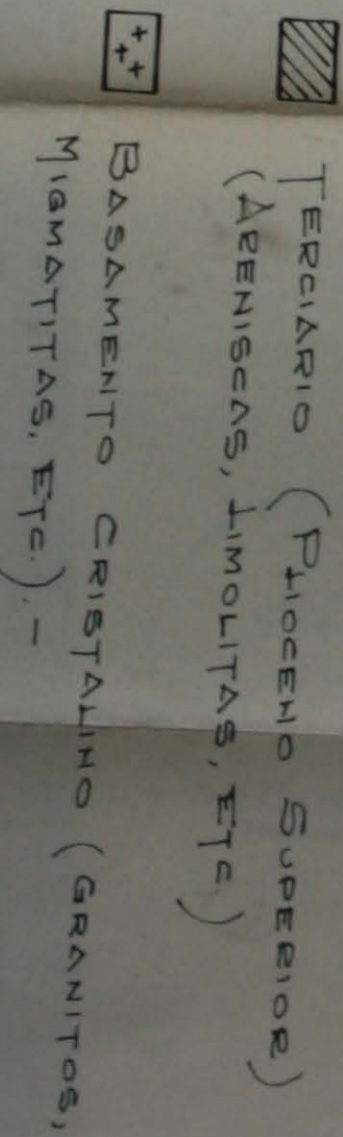 TERCIARIO (PLIOCENO SUPERIOR)
(ARENISCAS, LIMOLITAS, ETC.)
BASAMENTO CRISTALINO (GRANITOS,
MIGMATITAS, ETC.).-